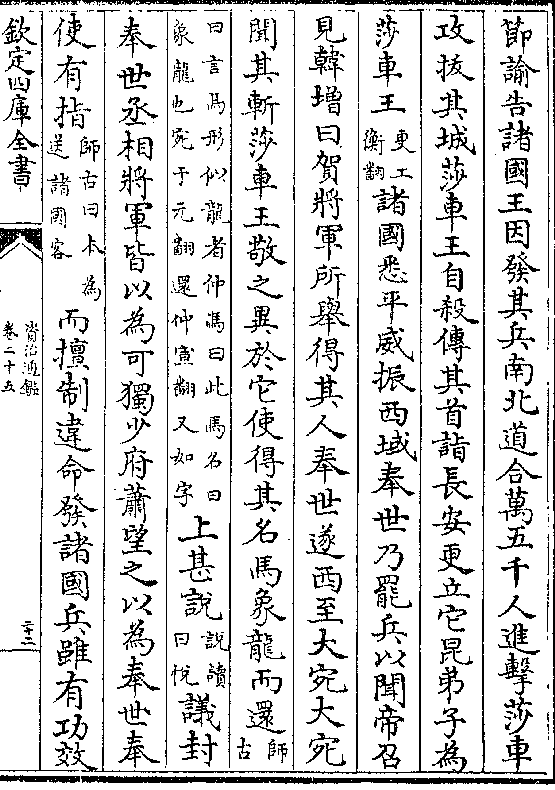 節諭告諸國王因發其兵南北道合萬五千人進擊莎車
攻拔其城莎車王自殺傳其首詣長安更立它昆弟子為
莎車王更工衡翻諸國悉平威振西域奉世乃罷兵以聞帝召
見韓增曰賀將軍所舉得其人奉世遂西至大宛大宛
聞其斬莎車王敬之異於它使得其名馬象龍而還師古
曰言馬形似龍者仲馮曰此馬名曰象龍也宛于元翻還仲宣翻又如字上甚說說讀曰悅議封
奉世丞相將軍皆以為可獨少府蕭望之以為奉世奉
使有指師古曰本為送諸國客而擅制違命發諸國兵雖有功效
欽定四庫全書
資治通鑑
卷二十五
二十二